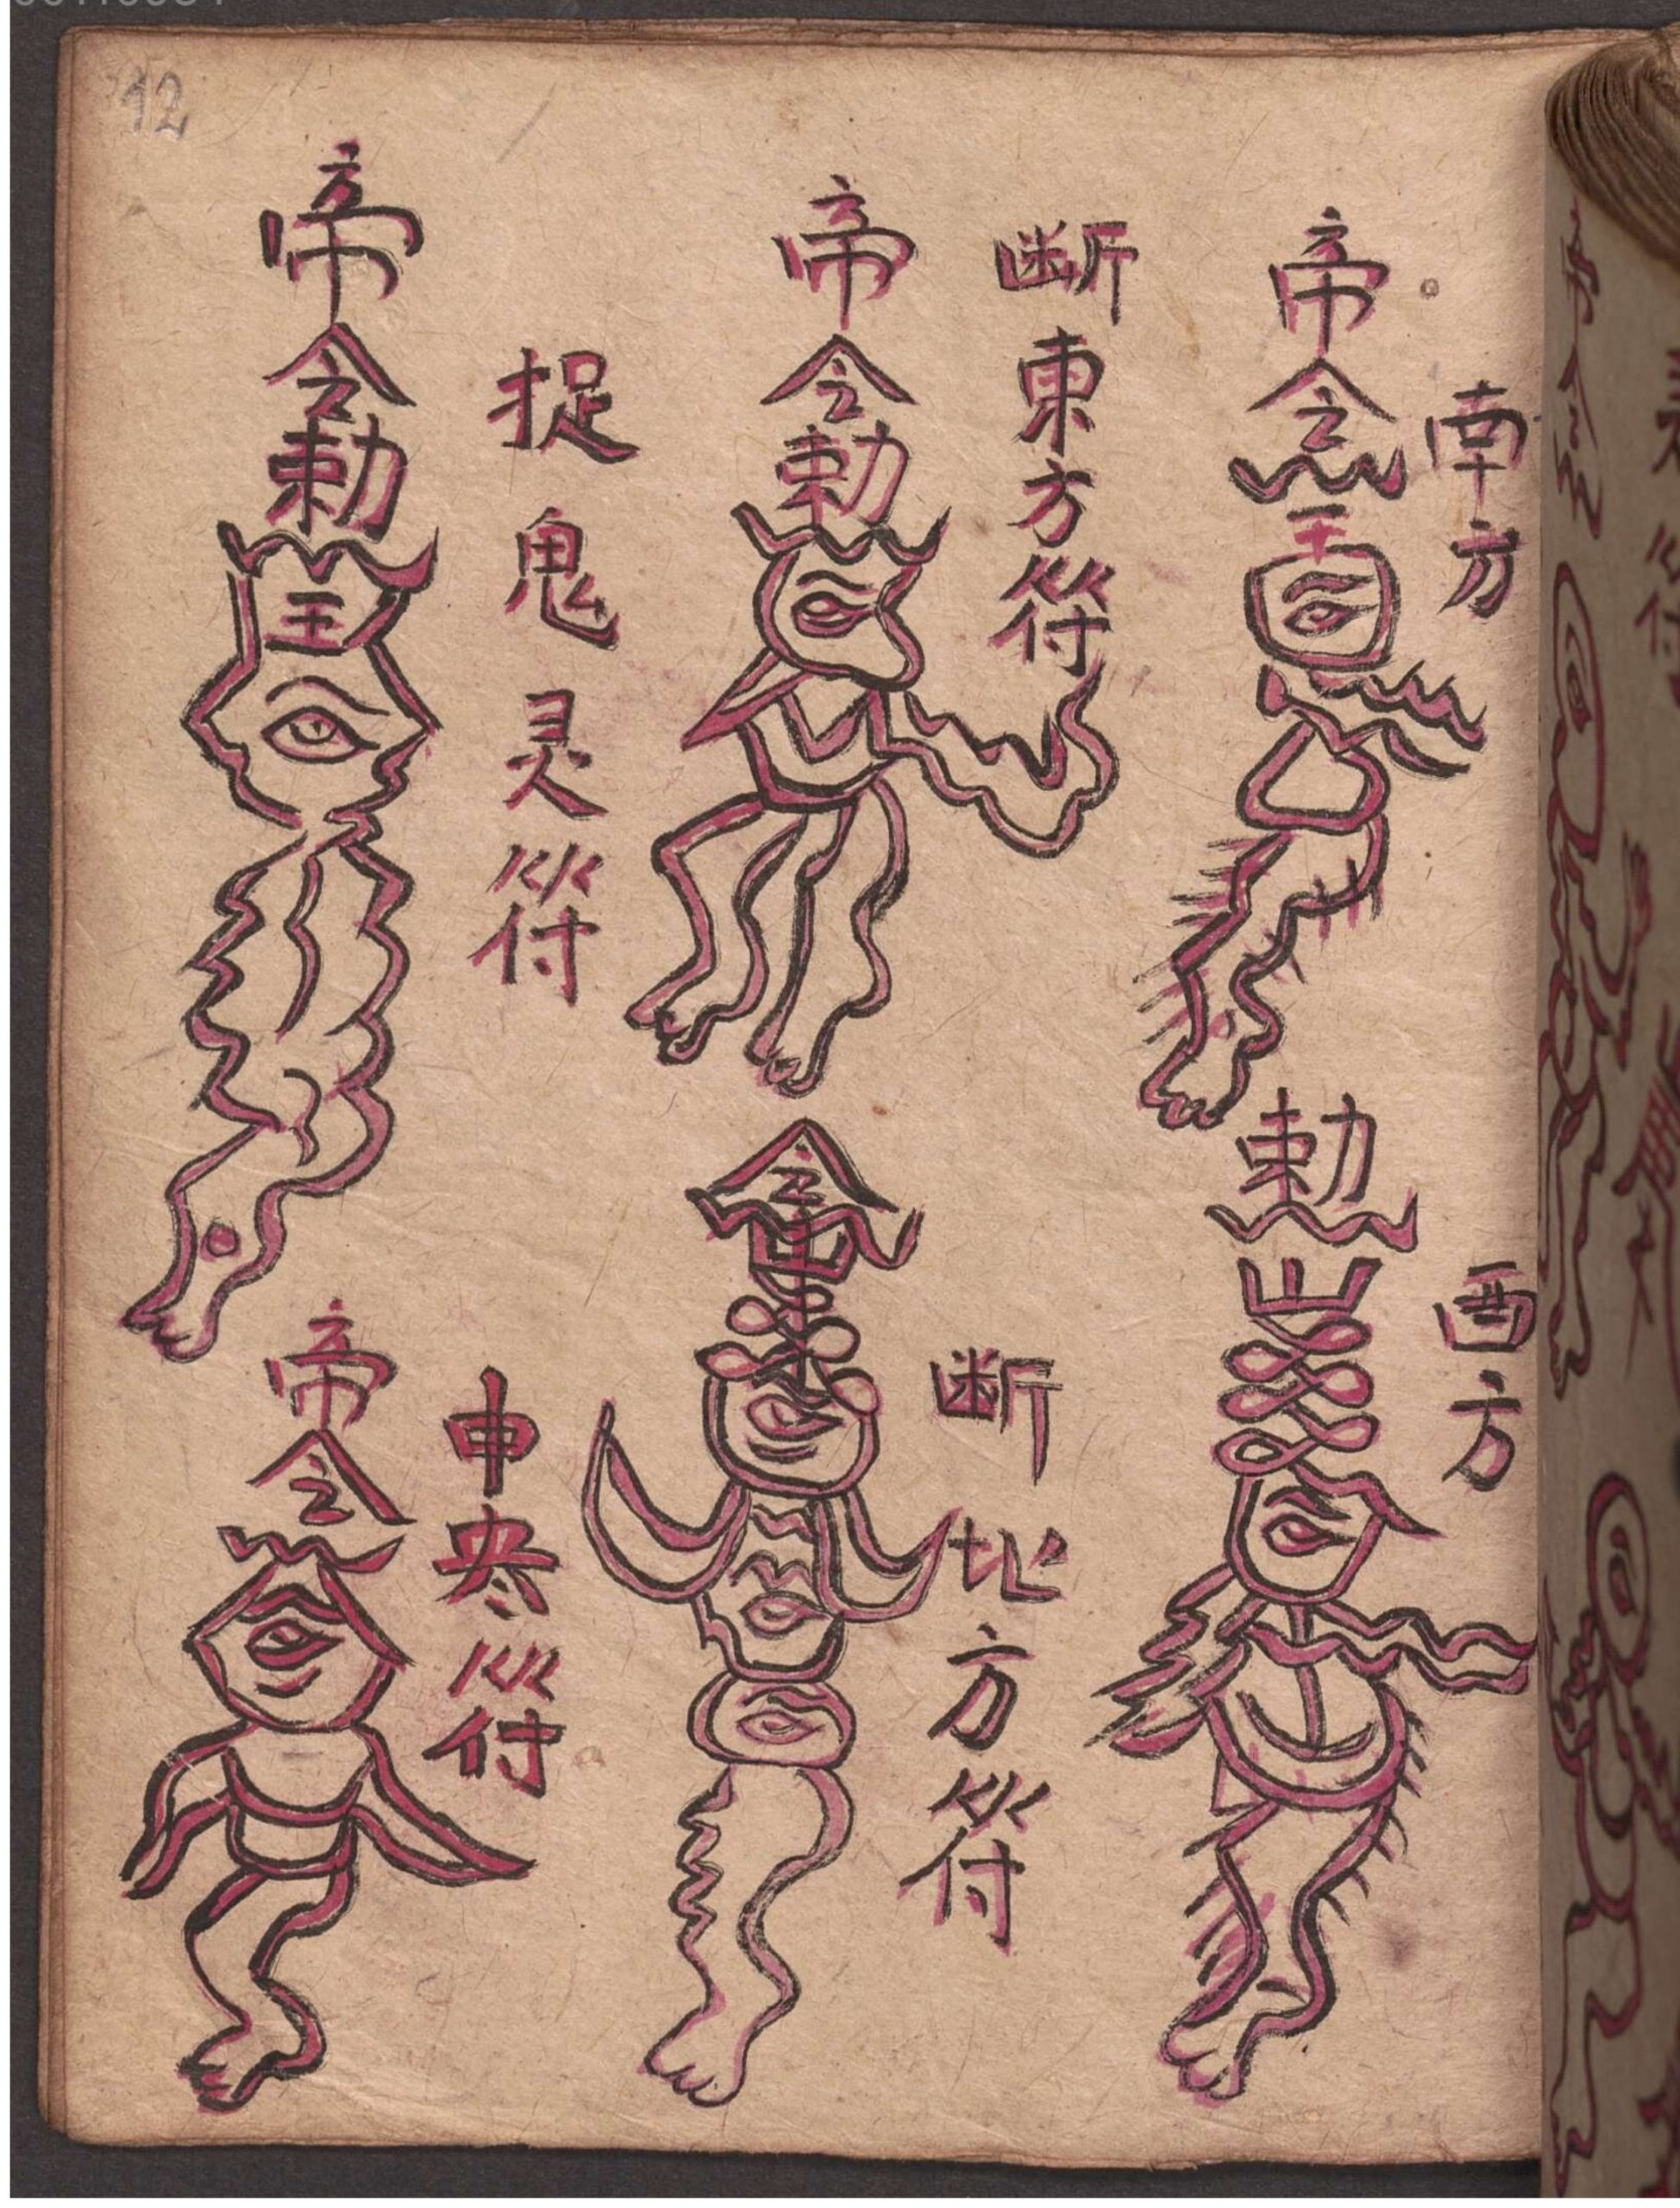 12
南方
帝令
王
西方
勅
断東方符
帝令勅
断北方符
令
捉鬼灵符
帝令勅
王
申央符
帝令